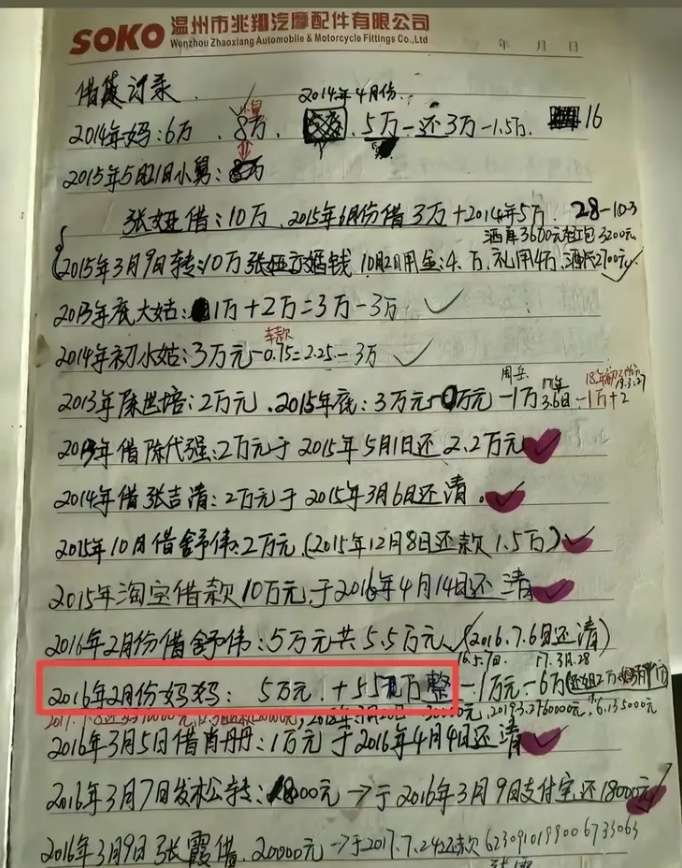 SOKO 温州市兆翔汽摩配件有限公司
Wenzhou Zhaoxiang Automobile & Motorcycle Fittings Co.,Ltd
年 月 日
借贷记录
2014年4月份
2014年妈:6万 8万 5万-还3万-1.5万 16
2015年5月21日小舅:
张娅借:10万 2015年6月份借3万+2014年5万 28-10-3
酒席3600元红包3200元
2015年3月9日转:10万张娅 婚钱 10月2日用金:4.万 礼用4万,酒 2700元
2013年底大姑:1万+2万=3万-3万
车款
2014年初小姑:3万元-0.75=2.25-3万
2013年陈世培:2万元.2015年底:3万元 万元-1万 3.6日-1万+2
2013年借陈代强:2万元于2015年5月1日还2.2万元
2014年借张吉清:2万元于2015年3月6日还清.
2015年10月借舒伟:2万元(2015年12月8日还款1.5万)
2015年淘宝借款10万元于2016年4月14日还清
2016年2月份借舒伟:5万元共5.5万元(2016.7.6日还清)
16.5.7日. 17.3月.28
2016年2月份妈妈: 5万元+5 万整-1万元-6万
2016年3月5日借肖丹丹:1万元于2016年4月4日还清
2016年3月7日发松公转:18000元→于2016年3月9日支付宝还18000元
2016年3月9日张霞借.20000元→于2017.7.24